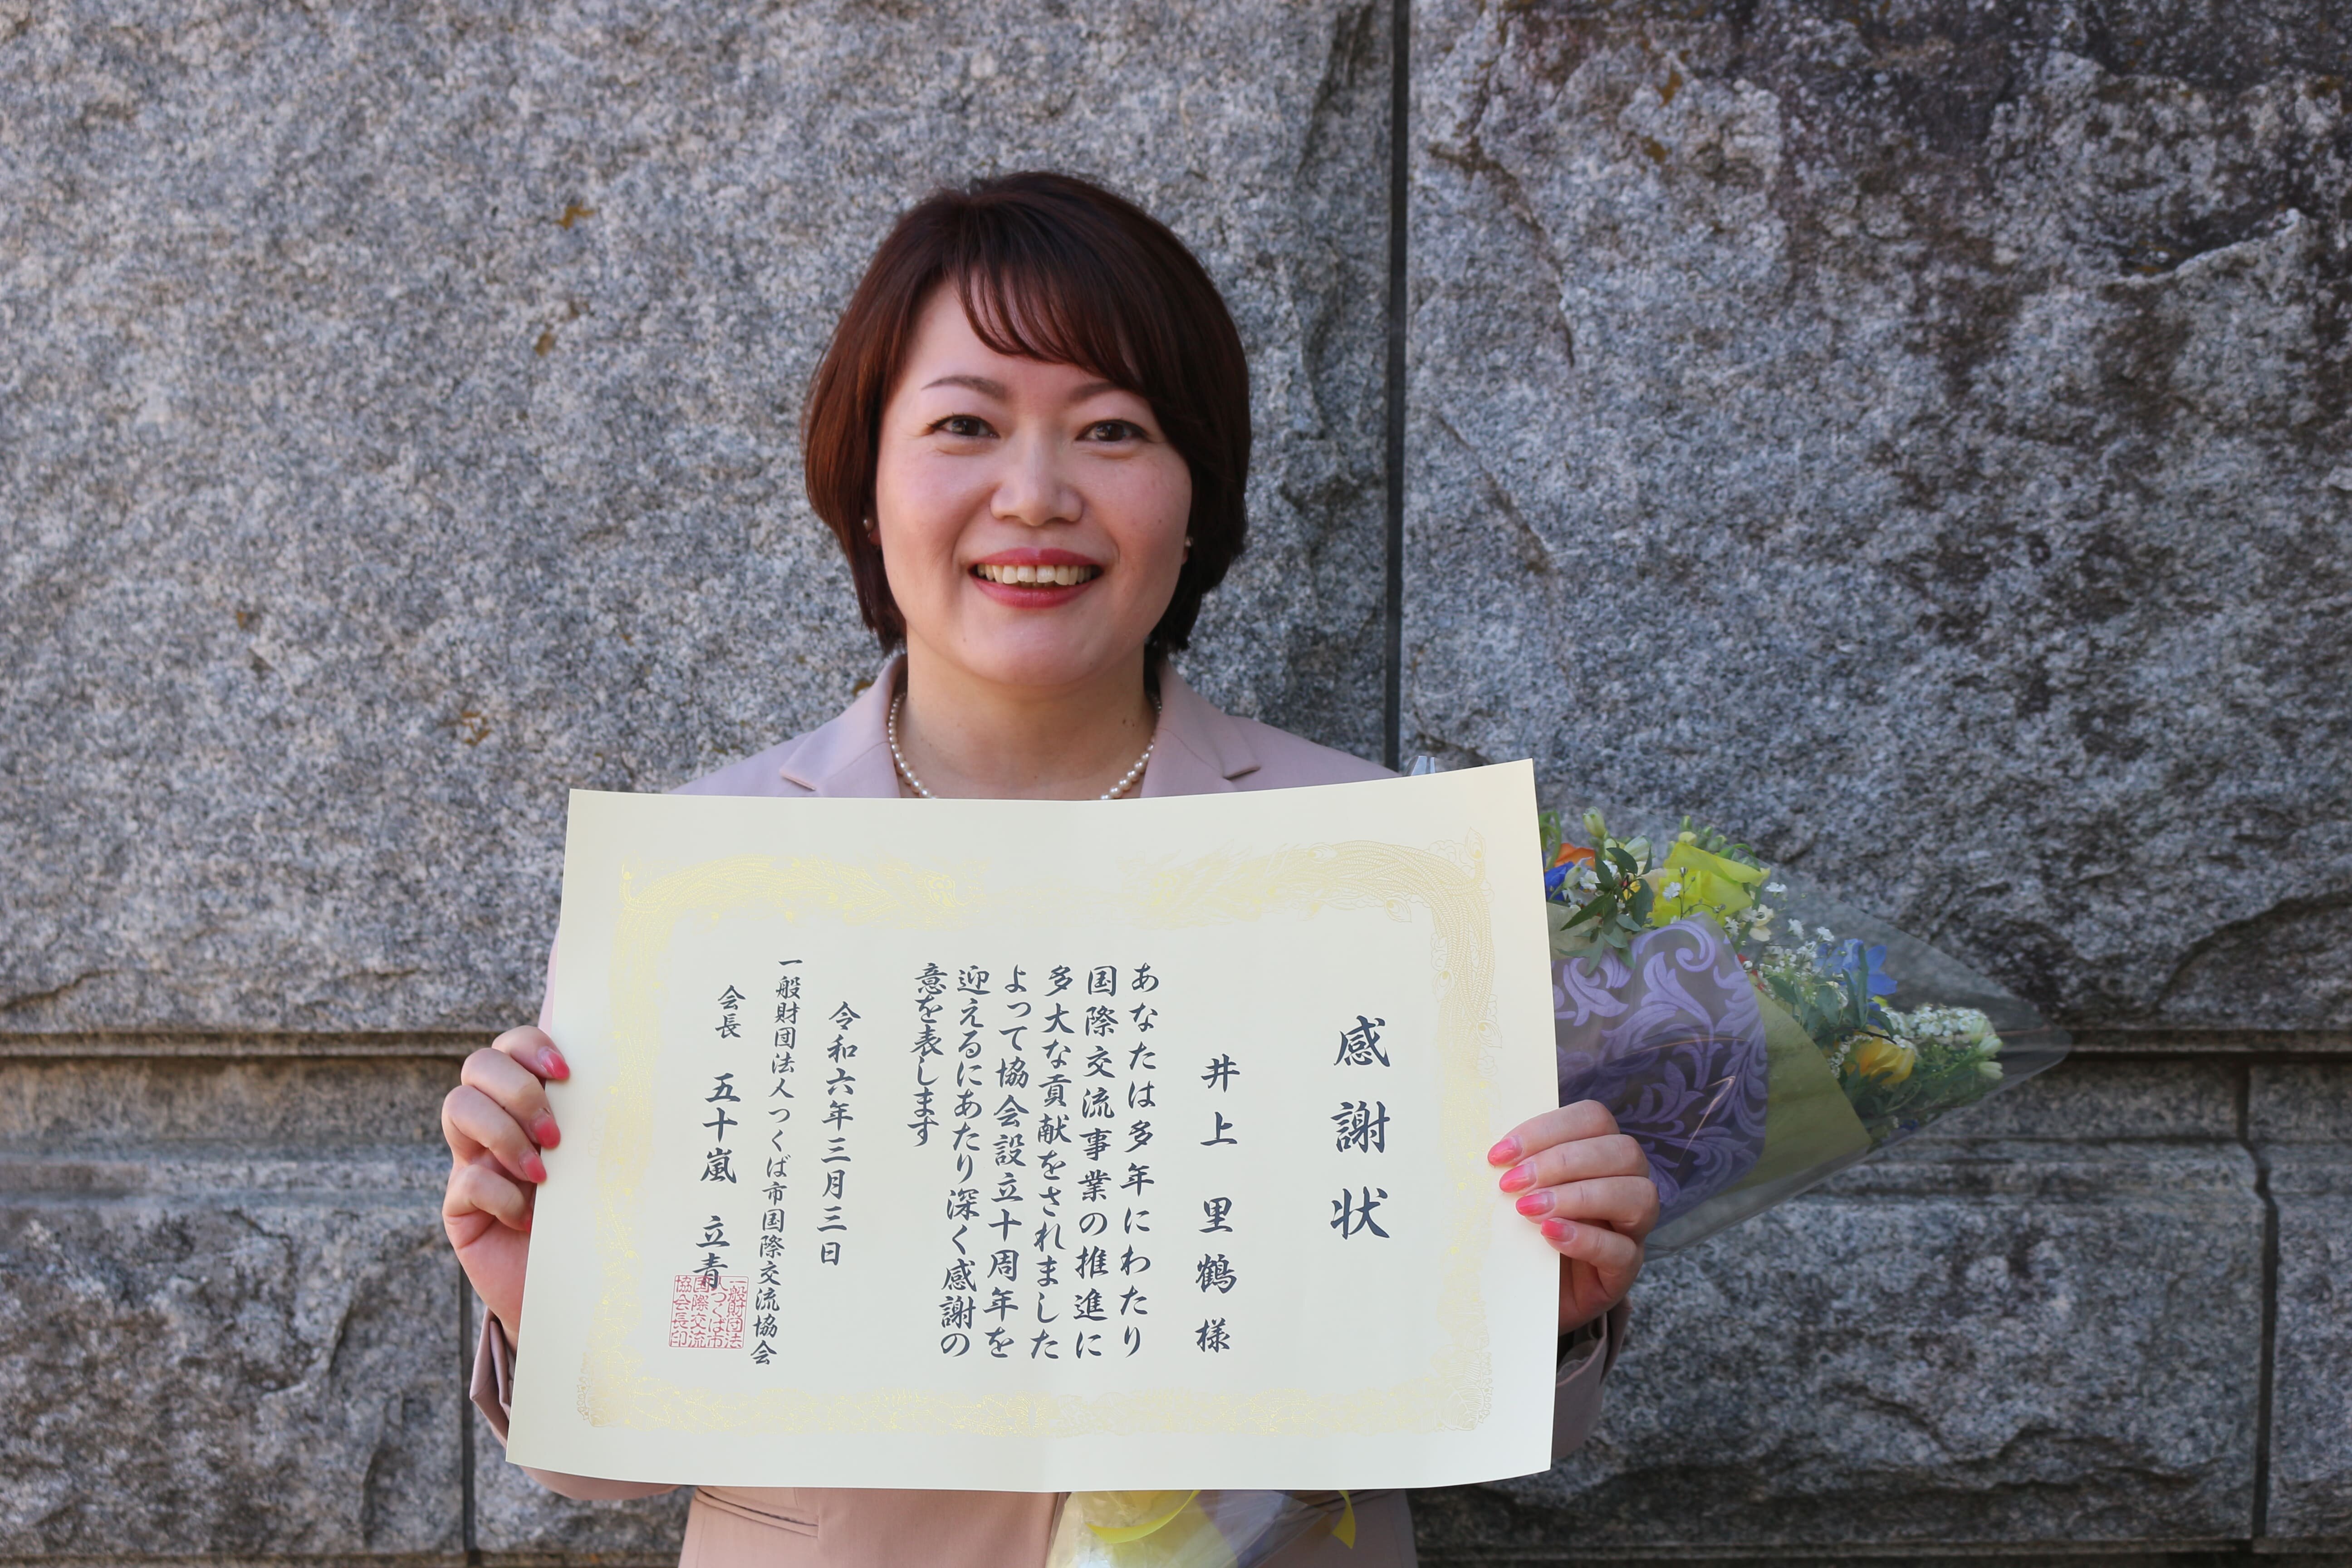 感謝状
井上 里鶴 様
あなたは多年にわたり
国際交流事業の推進に
多大な貢献をされました
よって協会設立十周年を
迎えるにあたり深く感謝の
意を表します
令和六年三月三日
一般財団法人つくば市国際交流協会
会長 五十嵐 立青
一般財団法
人つくば市
国際交流
協会長印